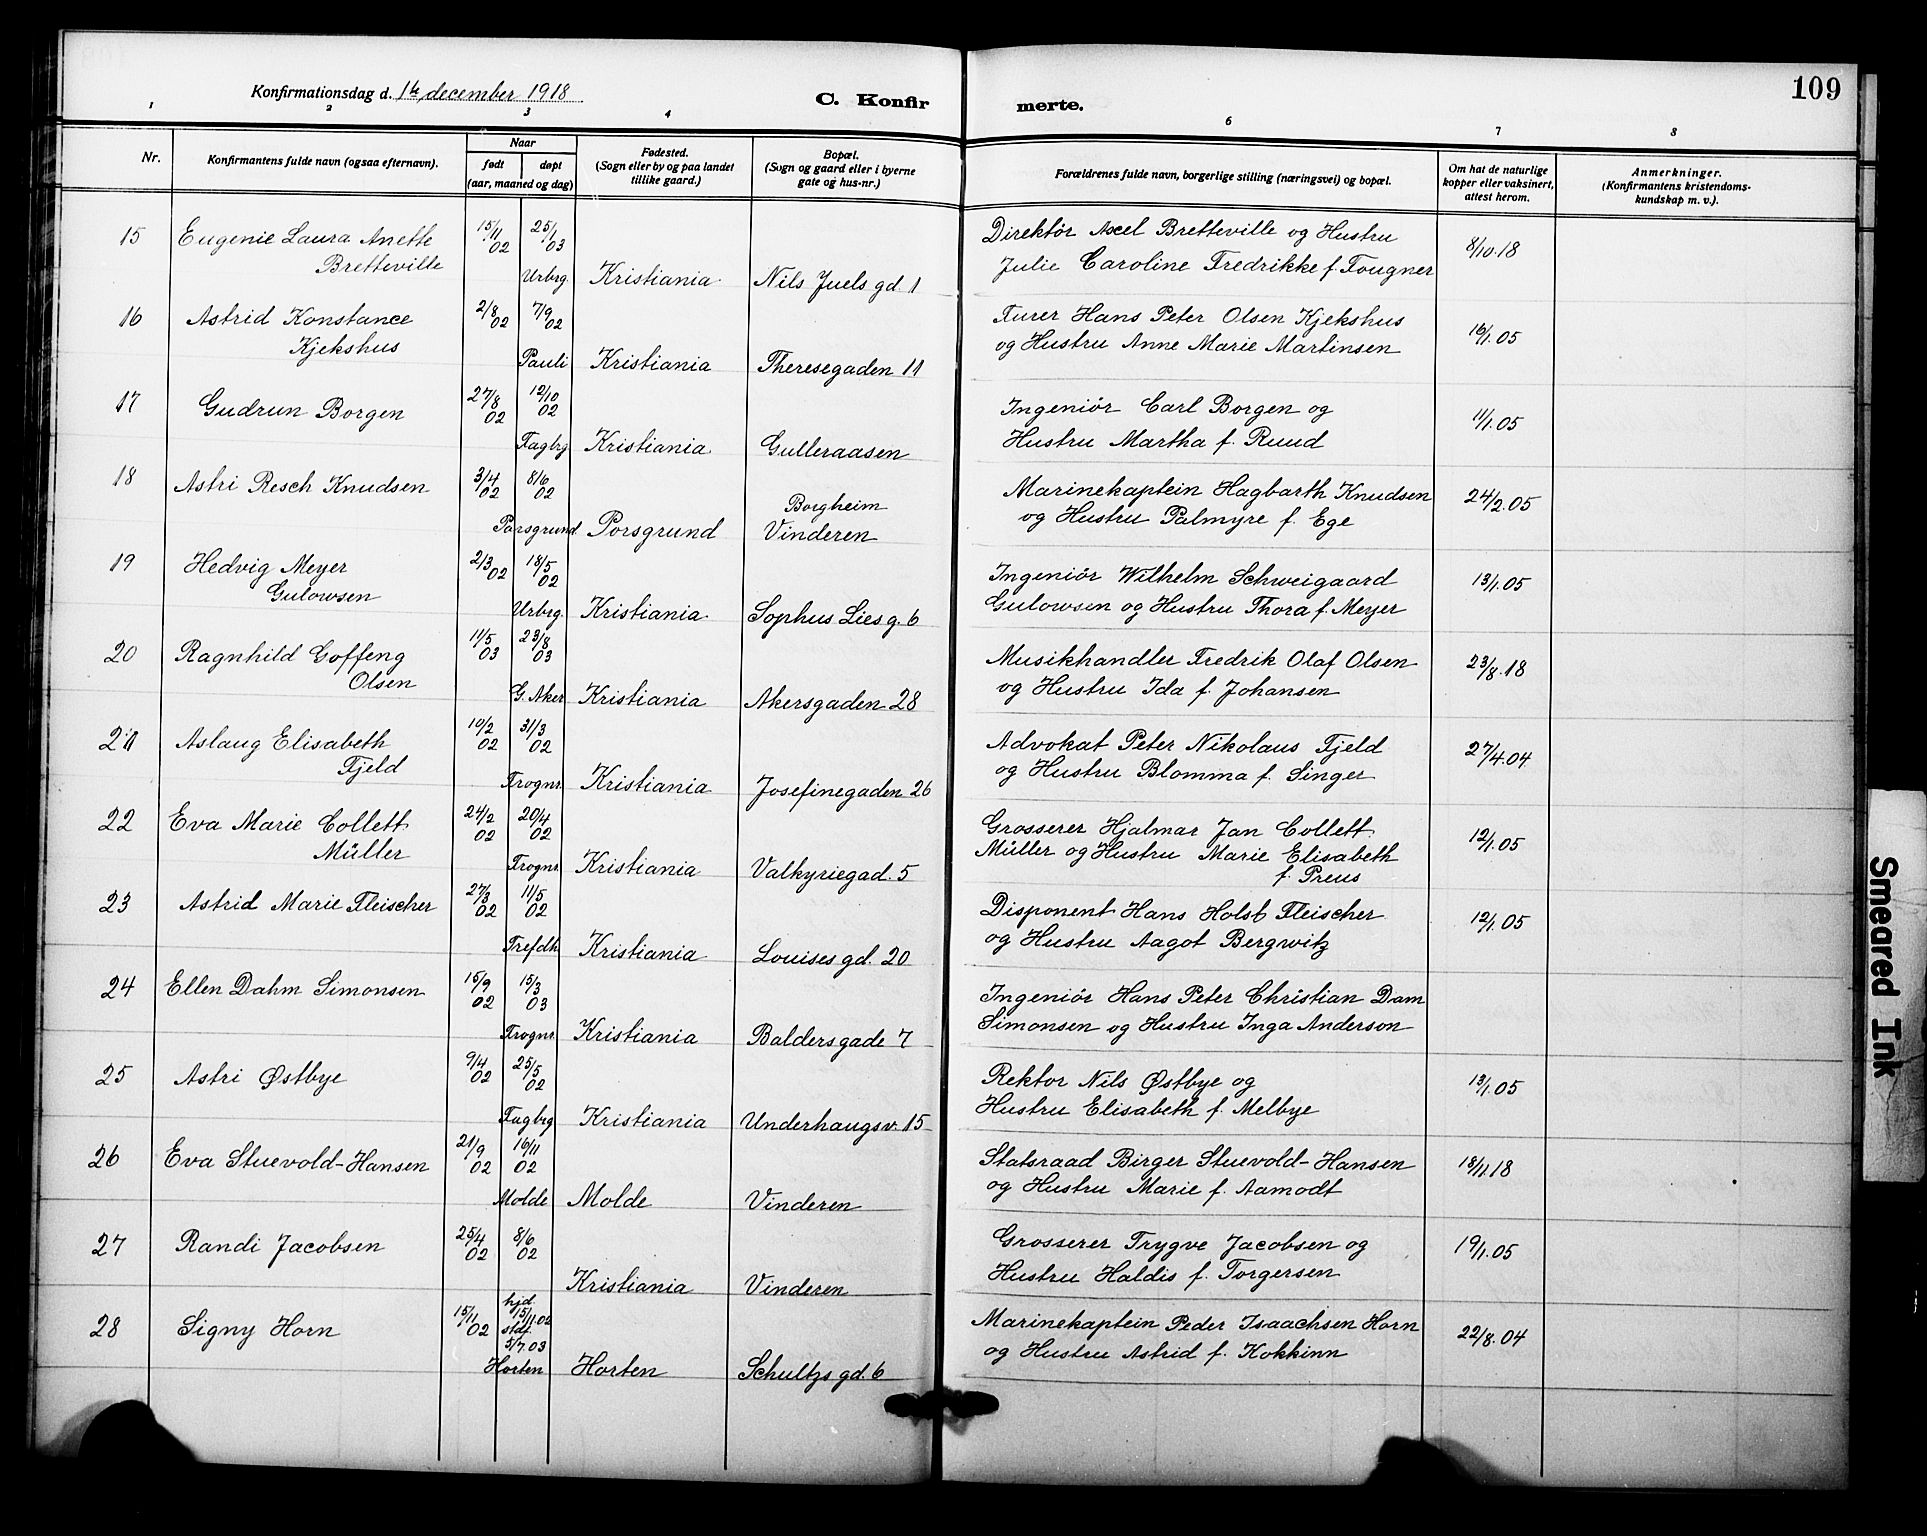 109
Konfirmationsdag d. 1ste december 1918
C. Konfirmerte.
1 2 3 4 6 7 8
Nr.
Konfirmantens fulde navn (ogsaa efternavn).
Naar
født døpt
(aar, maaned og dag)
Fødested.
(Sogn eller by og paa landet
tillike gaard.)
Bopæl.
(Sogn og gaard eller i byerne
gate og hus-nr.)
Forældrenes fulde navn, borgerlige stilling (næringsvei) og bopæl.
Om hat de naturlige
kopper eller vaksinert,
attest herom.
Anmerkninger.
(Konfirmantens kristendoms-
kundskap m. v.).
15 Eugenie Laura Anette 15/11 02 25/1 03 Direktör Axel Bretteville og Hustru 8/10.18
Bretteville Urbrg. Kristiania Nils Juels gd. 1 Julie Caroline Fredrikke f. Tougner
16 Astrid Konstance 2/8 02 7/9 02 Furer Hans Peter Olsen Kjekshus 16/1.05
Kjekshus Pauli Kristiania Theresegaden 11 og Hustru Anne Marie Martinsen
17 Gudrun Borgen 27/8 02 12/10 02 Ingeniör Carl Borgen og 11/1.05
Fagbrg Kristiania Gulleraasen Hustru Martha f. Ruud
18 Astri Resch Knudsen 3/4 02 8/6 02 Borgheim Marinekaptein Hagbarth Knudsen 24/2.05
Porsgrund Porsgrund Vinderen og Hustru Palmyre f. Ege
19 Hedvig Meyer 2/3 02 18/5 02 Ingeniör Wilhelm Schweigaard 13/1.05
Gulowsen Urbrg. Kristiania Sophus Lies g. 6 Gulowsen og Hustru Thora f. Meyer
20 Ragnhild Goffeng 11/5 03 23/8 03 Musikhandler Fredrik Olaf Olsen 23/8.18
Olsen G. Aker Kristiania Akersgaden 28 og Hustru Ida f. Johansen
21 Aslaug Elisabeth 10/2 02 31/3 02 Advokat Peter Nikolaus Fjeld 27/4.04
Fjeld Frognr. Kristiania Josefinegaden 26 og Hustru Blomma f. Singer
22 Eva Marie Collett 24/2 02 20/4 02 Grosserer Hjalmar Jan Collett 12/1.05
Müller Frognr. Kristiania Valkyriegad. 5 Müller og Hustru Marie Elisabeth
f. Preus
23 Astrid Marie Fleischer 27/3 02 11/5 02 Disponent Hans Holst Fleischer 12/1.05
Trefdh. Kristiania Louises gd. 20 og Hustru Aagot Bergwitz
24 Ellen Dahm Simonsen 15/9 02 15/3 03 Ingeniör Hans Peter Christian Dam
Frognr. Kristiania Baldersgade 7 Simonsen og Hustru Inga Anderson
25 Astri Østbye 9/4 02 25/5 02 Rektor Nils Østbye og 13/1.05
Fagbrg Kristiania Underhaugsv. 15 Hustru Elisabeth f. Melbye
26 Eva Stuevold-Hansen 21/9 02 16/11 02 Statsraad Birger Stuevold-Hansen 18/11.18
Molde Molde Vinderen og Hustru Marie f. Aamodt
27 Randi Jacobsen 25/4 02 8/6 02 Grosserer Trygve Jacobsen og 19/1.05
Kristiania Vinderen Hustru Haldis f. Torgersen
28 Signy Horn 15/11 02 hjd. 15/11 02 stdf. 5/7.03 Marinekaptein Peder Isaachsen Horn 22/8.04
Horten Horten Schultzs gd. 6 og Hustru Astrid f. Kokkinn
Smeared Ink